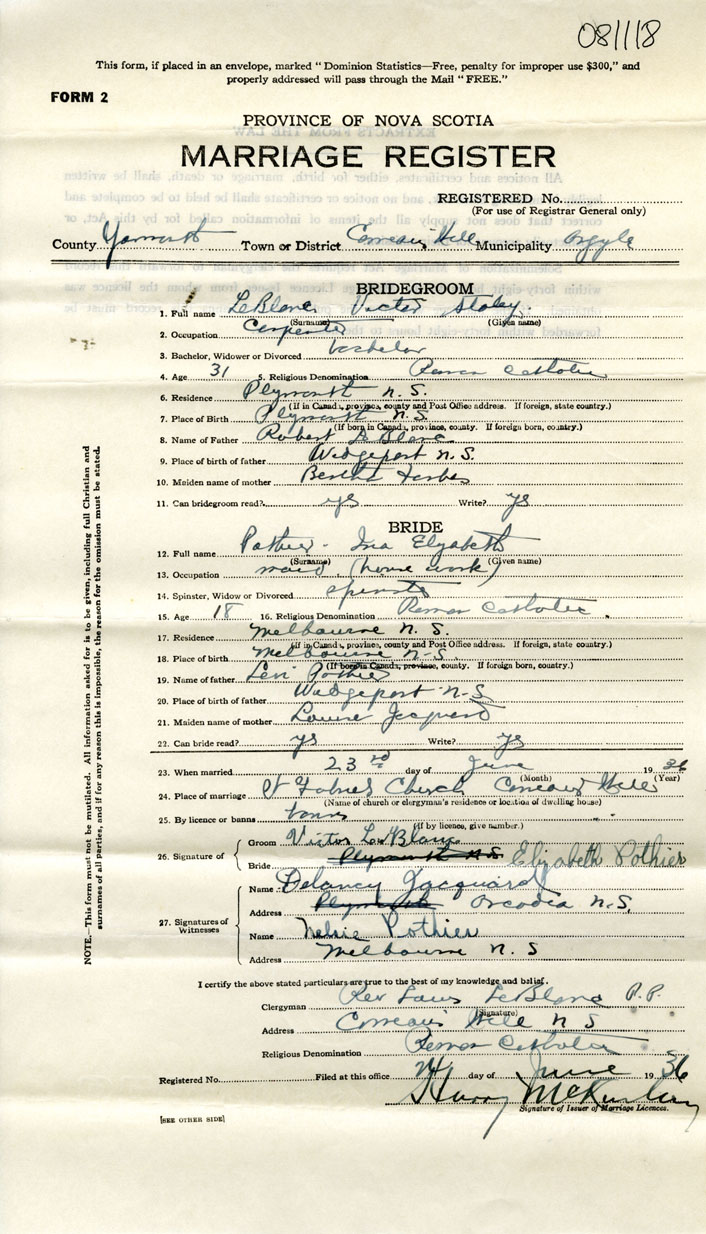 081118
This form, if placed in an envelope, marked "Dominion Statistics—Free, penalty for improper use $300," and
properly addressed will pass through the Mail "FREE."
FORM 2
PROVINCE OF NOVA SCOTIA
MARRIAGE REGISTER
REGISTERED No.
(For use of Registrar General only)
County Yarmouth Town or District Comeau's Hill Municipality Argyle
BRIDEGROOM
1. Full name LeBlanc Victor Staley
(Surname) (Given name)
2. Occupation Carpenter
3. Bachelor, Widower or Divorced bachelor
4. Age 31 5. Religious Denomination Roman Catholic
6. Residence Plymouth N.S.
(If in Canada, province, county and Post Office address. If foreign, state country.)
7. Place of Birth Plymouth N.S.
(If born in Canada, province, county. If foreign born, country.)
8. Name of Father Robert LeBlanc
9. Place of birth of father Wedgeport N.S.
10. Maiden name of mother Bertha Forbes
11. Can bridegroom read? yes Write? yes
BRIDE
12. Full name Pothier - Ina Elyzabeth
(Surname) (Given name)
13. Occupation maid (house work)
14. Spinster, Widow or Divorced spinster
15. Age 18 16. Religious Denomination Roman Catholic
17. Residence Melbourne N.S.
(If in Canada, province, county and Post Office address. If foreign, state country.)
18. Place of birth Melbourne N.S.
(If born in Canada, province, county. If foreign born, country.)
19. Name of father Levi Pothier
20. Place of birth of father Wedgeport N.S
21. Maiden name of mother Louise Jacquard
22. Can bride read? yes Write? yes
23. When married 23rd day of June 1936
(Month) (Year)
24. Place of marriage Church Comeau's Hill
(Name of church or clergyman's residence or location of dwelling house)
25. By licence or banns banns
(If by licence, give number.)
26. Signature of Groom Victor LeBlanc
Bride Plymouth N.S. Elizabeth Pothier
27. Signatures of Witnesses
Name Delancy Jacquard
Address Plymouth Arcadia N.S.
Name Nelsie Pothier
Address Melbourne N.S
I certify the above stated particulars are true to the best of my knowledge and belief.
Clergyman Rev Louis LeBlanc P.P.
(Signature)
Address Comeau's Hill N S
Religious Denomination Roman Catholic
Registered No. Filed at this office 24 day of June 1936
Harry McKinlay
Signature of Issuer of Marriage Licences.
[SEE OTHER SIDE]
NOTE.—This form must not be mutilated. All information asked for is to be given, including full Christian and
surnames of all parties, and if for any reason this is impossible, the reason for the omission must be stated.